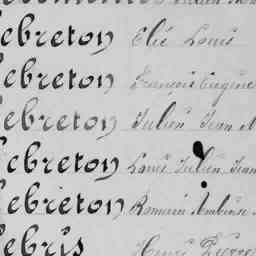 Lebreton Elie Louis
Lebreton François Eugène
Lebreton Julien Jean M
Lebreton Louis Julien Jean
Lebreton Romain Ambroise
Lebris Henri Pierre